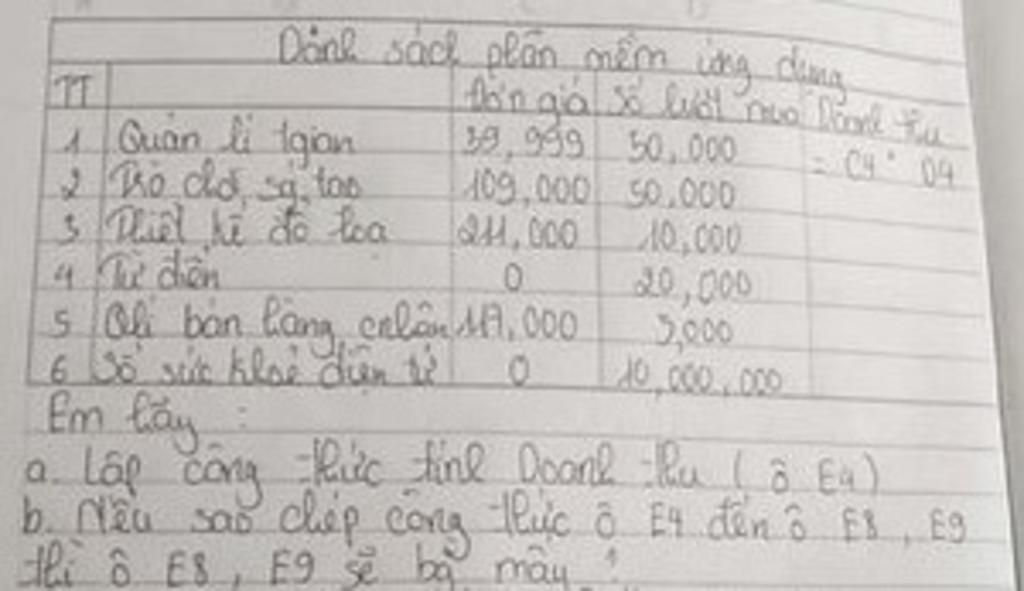 Danh sách phần mềm ứng dụng
TT Đơn giá Số lượt mua Doanh thu
1 Quản lí tgian 39,999 50,000 = C4* D4
2 Trò chơi sg tạo 109,000 50,000
3 Thiết kế đồ họa 211,000 10,000
4 Từ điển 0 20,000
5 Qlí bán hàng cnhân 000
6 Sổ sức khoẻ điện tử 0 10,000,000
Em hãy :
a. Lập công thức tính Doanh thu ( ô E4)
b. Nếu sao chép công thức ô E4 đến ô E8, E9
thì ô E8, E9 sẽ bg mấy ?